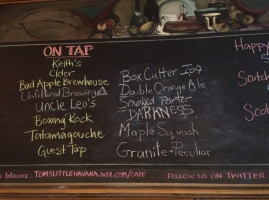 ON TAP
Keith's
Cider
Bad Apple Brewhouse
Unfiltered Brewing
Uncle Leo's
Boxing Rock
Tatamagouche
Guest Tap
Box Cutter IPA
Double Orange Ale
Smoked Porter
DARKNESS
Maple Squash
Granite-Peculiar
Happy
Scotch
Scot
WEBSITE: TOMSLITTLEHAVANA.WIX.COM/CAFE
FOLLOW US ON TWITTER